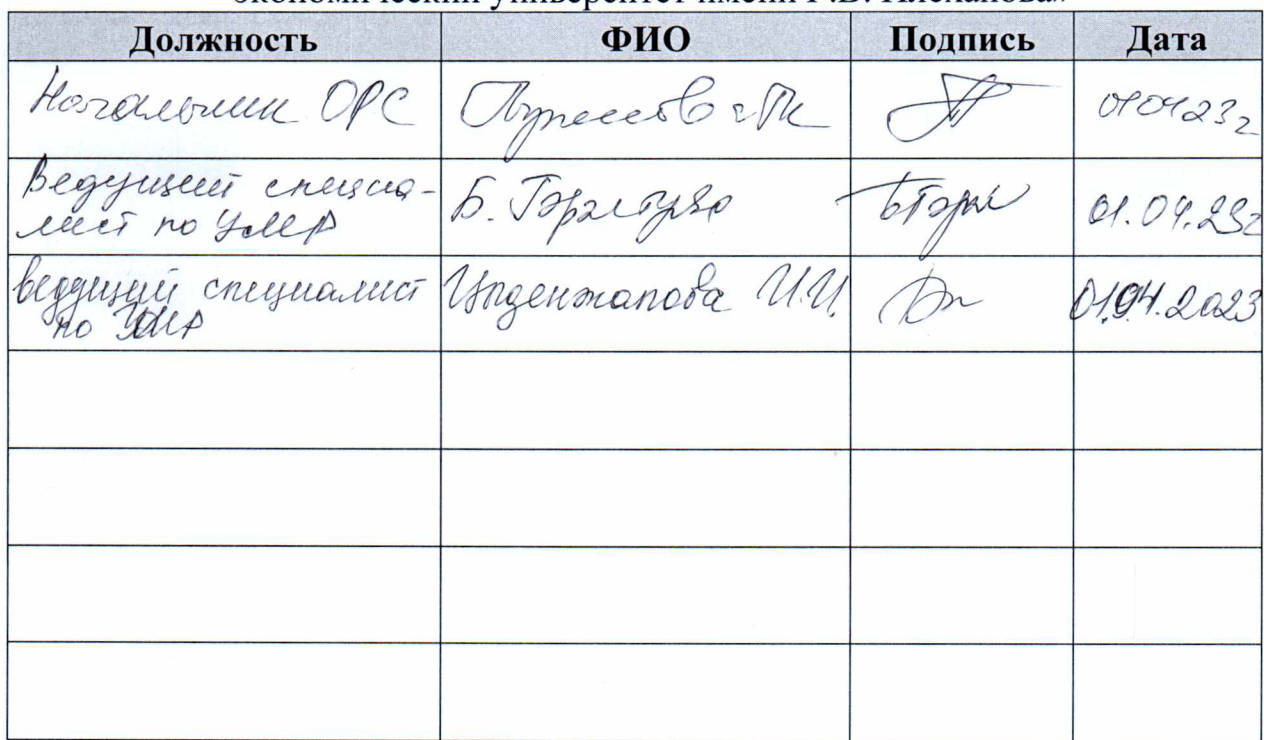 экономический университет имени Г.В. Плеханова»
Должность ФИО Подпись Дата
Начальник ОРС 010423г
Ведущий специа-
лист по УМР Б. 01.04.23г
ведущий специалист
по УМР Цыденжапова И.И. 01.04.2023